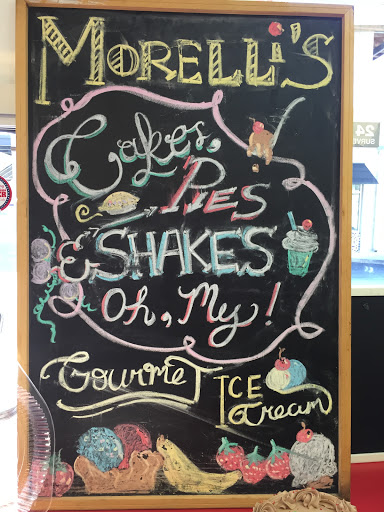 MORELLI'S
Cakes,
PIES
& SHAKES
Oh, My!
Gourmet ICE
Cream
24
SURVE